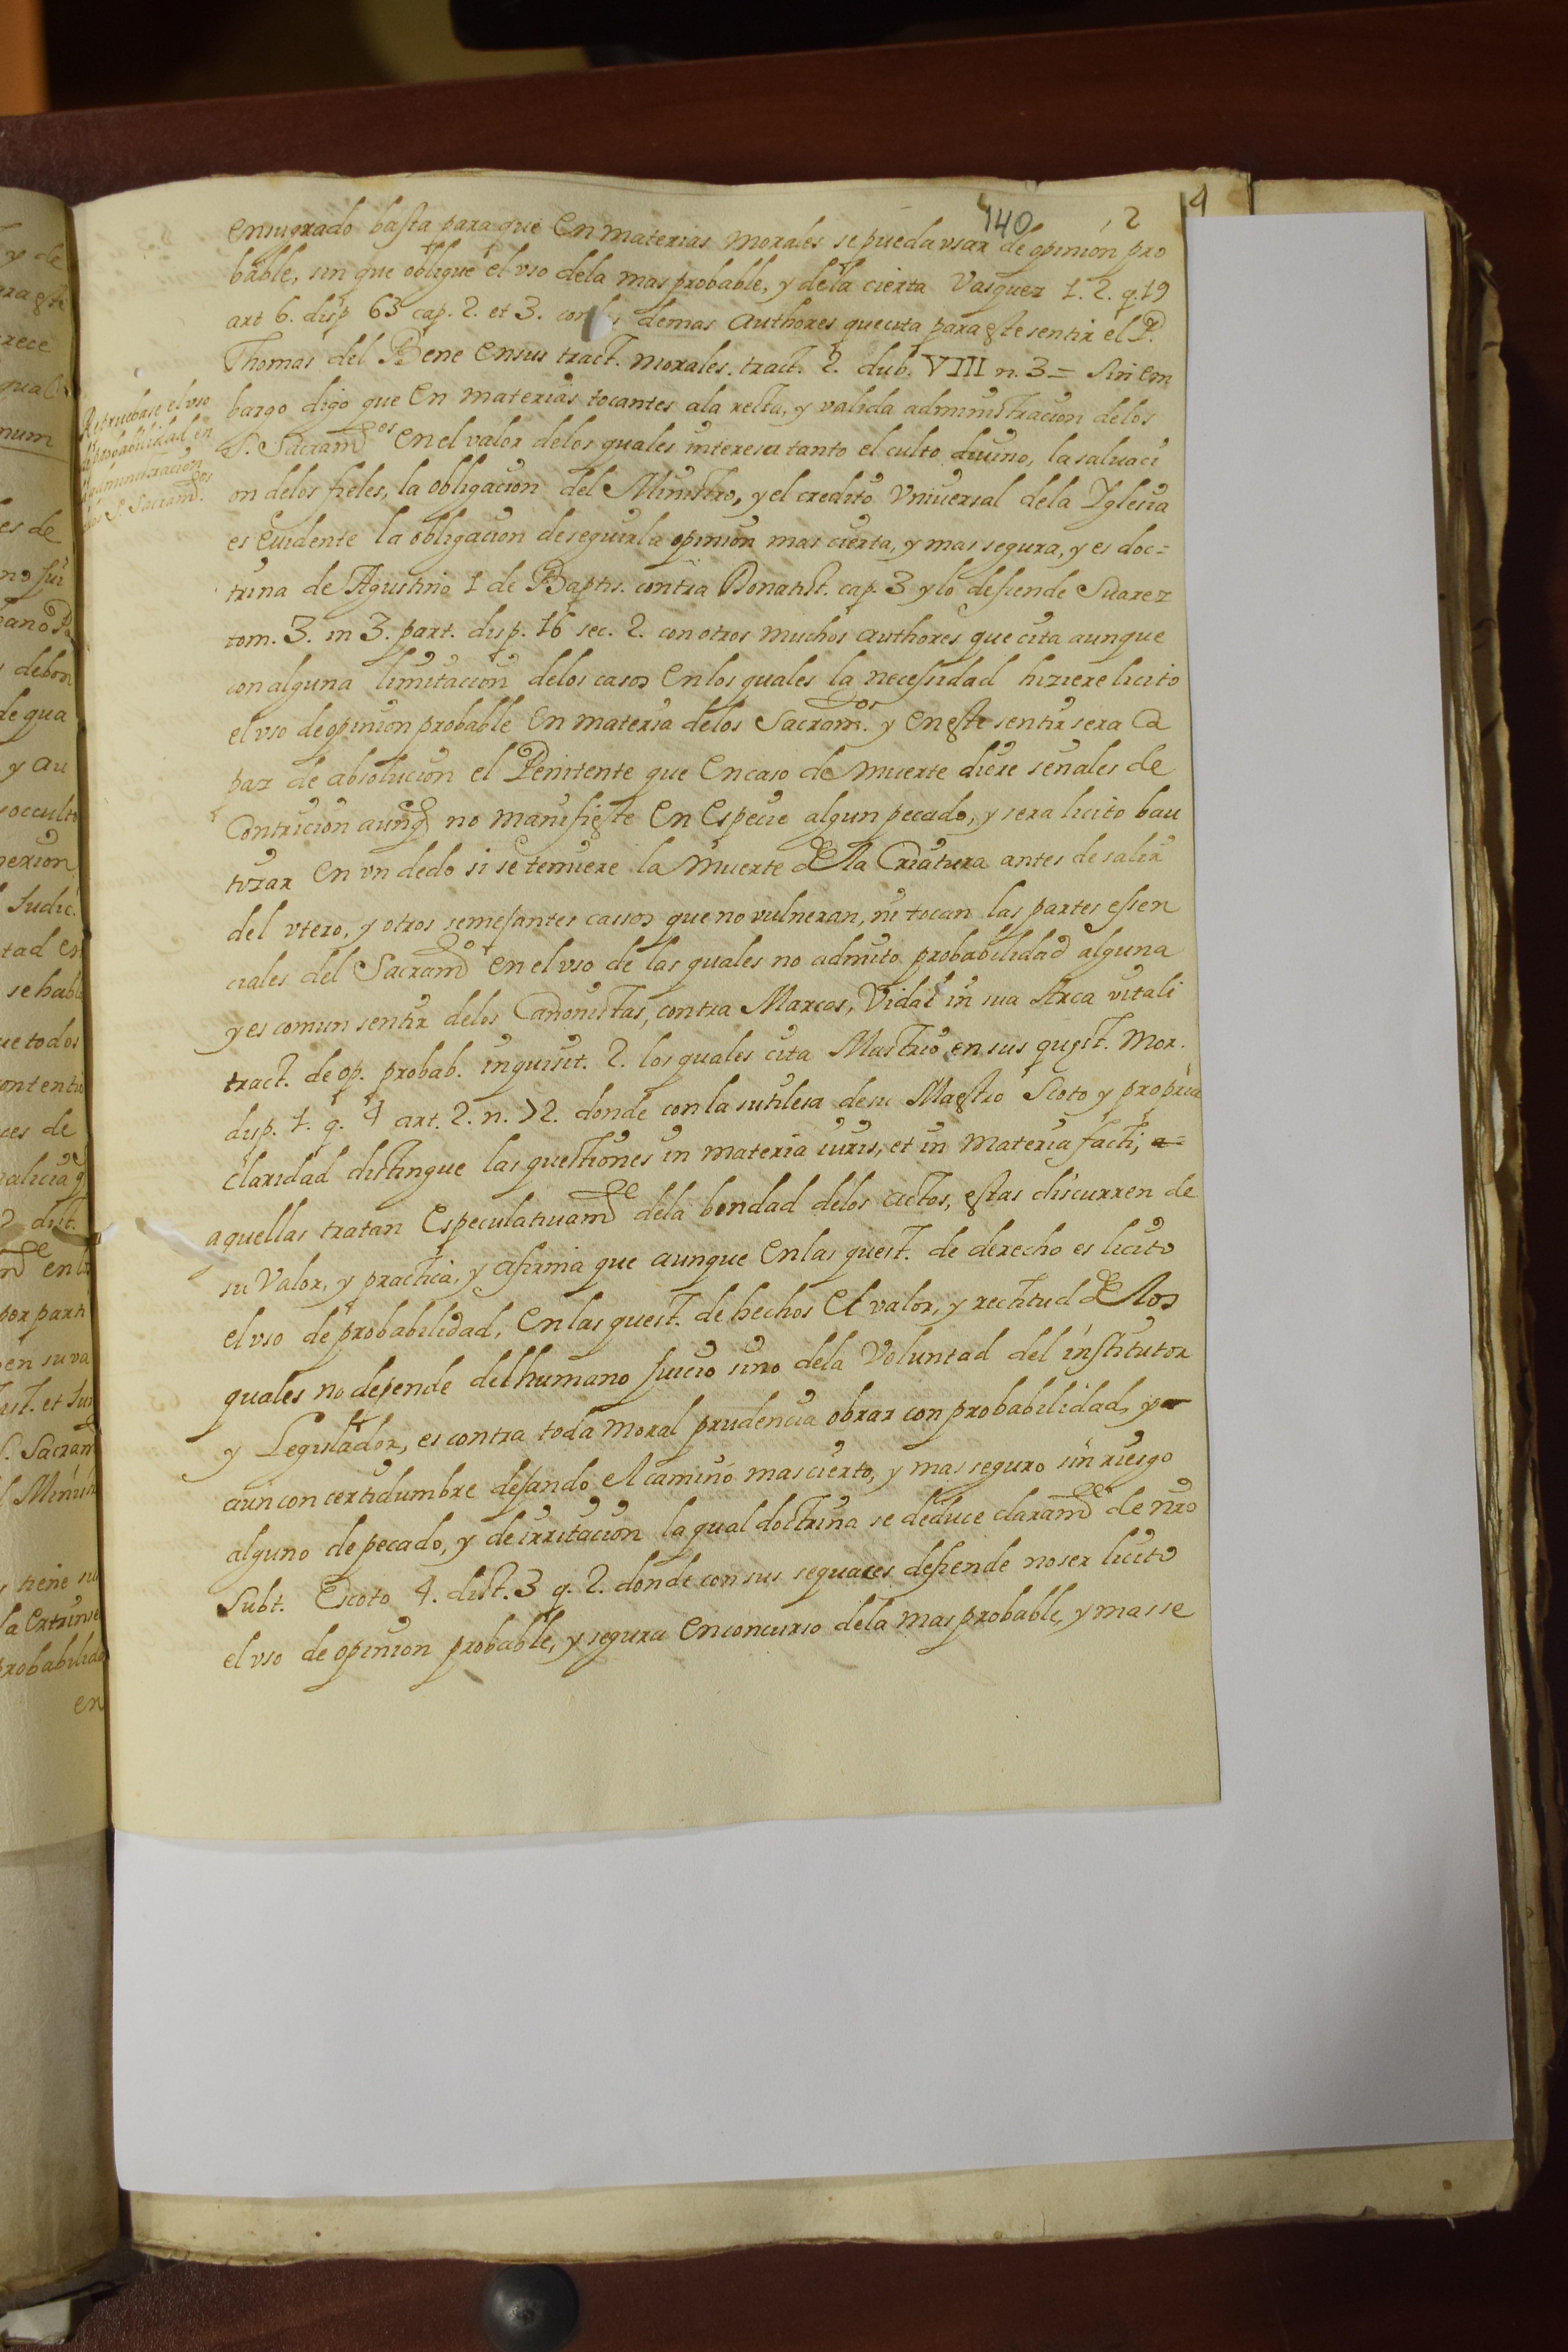 140 2 4
en su grado basta para que en materias morales se pueda vsar de opinion pro
bable, sin que obligue el vso dela mas probable, y dela cierta Vasquez 1. 2. q. 19
art 6. disp 63 cap. 2. et 3. con los demas Authores que cita para este sentir el P.
Thomas del Bene en sus tract. morales. tract. 2. dub. VIII n. 3 = Sin em
bargo digo que en materias tocantes ala recta, y valida administracion delos
S. Sacramos en el valor delos quales interesa tanto el culto divino, la salvaci
on delos fieles, la obligacion del Ministro, y el credito Vniversal dela Yglesia
es evidente la obligacion de seguir la opinion mas cierta, y mas segura, y es doc=
trina de Agustino 1 de Baptis. contra Donatist. cap. 3 y lo defiende Suarez
tom. 3. in 3. part. disp. 16 sec. 2. con otros muchos authores que cita aunque
con alguna limitacion delos casos en los quales la necessidad hiziere licito
el vso de opinion probable en materia delos Sacramos. y en este sentir sera ca
paz de absolucion el Penitente que en caso de muerte diere señales de
Contricion aunq no manifieste en especie algun pecado, y sera licito bau
tizar en vn dedo si se temiere la muerte dela Criatura antes de salir
del vtero, y otros semejantes cassos que no vulneran, ni tocan las partes essen
ciales del Sacramto en el vso de las quales no admito probabilidad alguna
y es comun sentir delos Canonistas, contra Marcos, Vidal in sua Arca vitali
tract. de op. probab. inquisit. 2. los quales cita Mastrio en sus quest. Mor.
disp. 1. q. 4 art. 2. n. 72. donde con la sutilesa de su Maestro Scoto y propria
claridad distingue las questiones in materia iuris, et in materia facti,
aquellas tratan especulativamte dela bondad delos actos, estas discurren de
su valor, y practica, y afirma que aunque en las quest. de derecho es licito
el vso de probabilidad, en las quest. de hechos el valor, y rectitud delos
quales no depende del humano juicio sino dela Voluntad del institutor
y Legislador, es contra toda moral prudencia obrar con probabilidad, y
aun con certidumbre dejando el camino mas cierto, y mas seguro sin riesgo
alguno de pecado, y de irritacion la qual doctrina se deduce claramte de nro
Subt. Escoto 4. dist. 3 q. 2. donde con sus sequaces defiende no ser licito
el vso de opinion probable, y segura en concurso dela mas probable, y mas se
Repruebase el vso
de probabilidad en
la administracion
delos S. Sacramos.